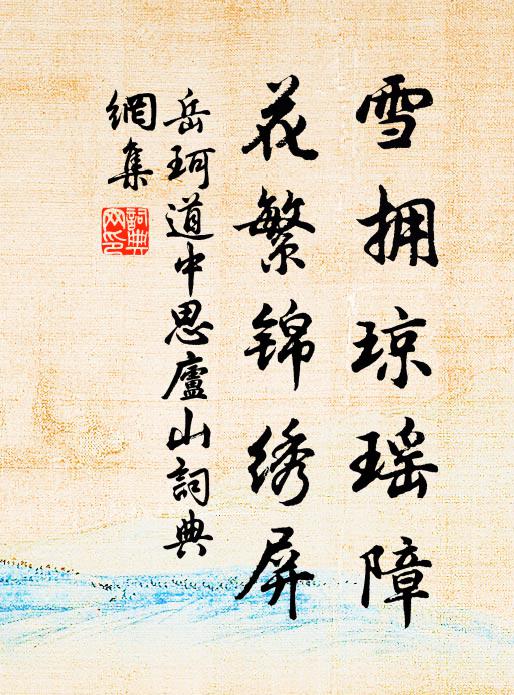 雪拥琼瑶障
花繁锦绣屏
岳珂道中思廬山詞典
網集
詞典網印